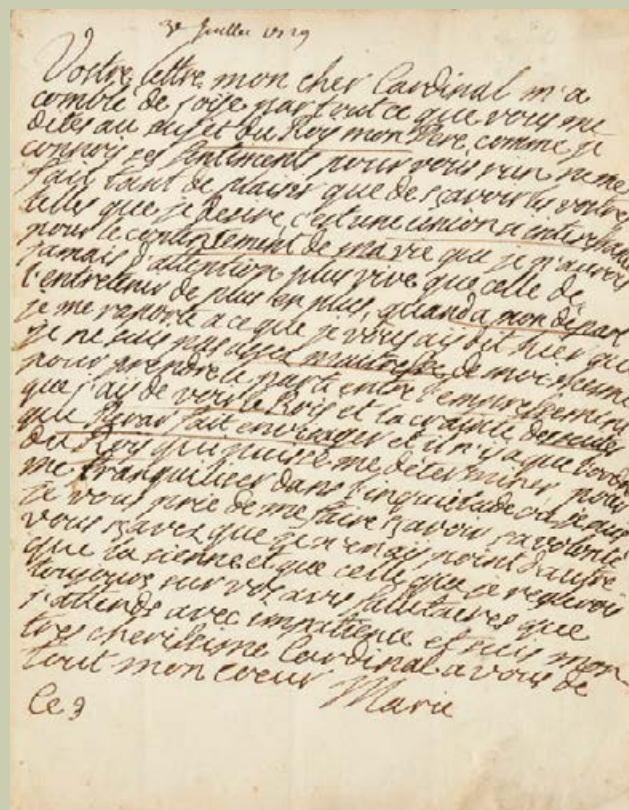 Juillet 1729
Vostre lettre mon cher Cardinal m'a
comblé de joïe par tout ce que vous me
dites au sujet du Roy mon Pere, comme je
connois ses sentiments pour vous rien ne me
fait tant de plaisir que de scavoir les votres
telles que je desire, c'est une union a
pour le contentement de ma vie que je n'aurois
jamais d'attention plus vive que celle de
l'entretenir de plus en plus, quand a mon depar
je me raporte a ce que je vous ais dit hier que
je ne suis pas assez maitresse de moi meme
pour prendre le parti entre l'empressement
que j'ais de voir le Rois et la crainte
que fait envisager et il n'y a que l'ordre
du Roy qui puisse me determiner pour
me tranquilier dans l'inquietude où je suis
je vous prie de me faire scavoir sa volonté
vous scavez que je n'en ais point d'autre
que la sienne et que celle que je
toujours sur vos avis salutaires que
j'attends avec impatience et suis mon
tres cherissime Cardinal a vous de
tout mon coeur Marie
Ce 3